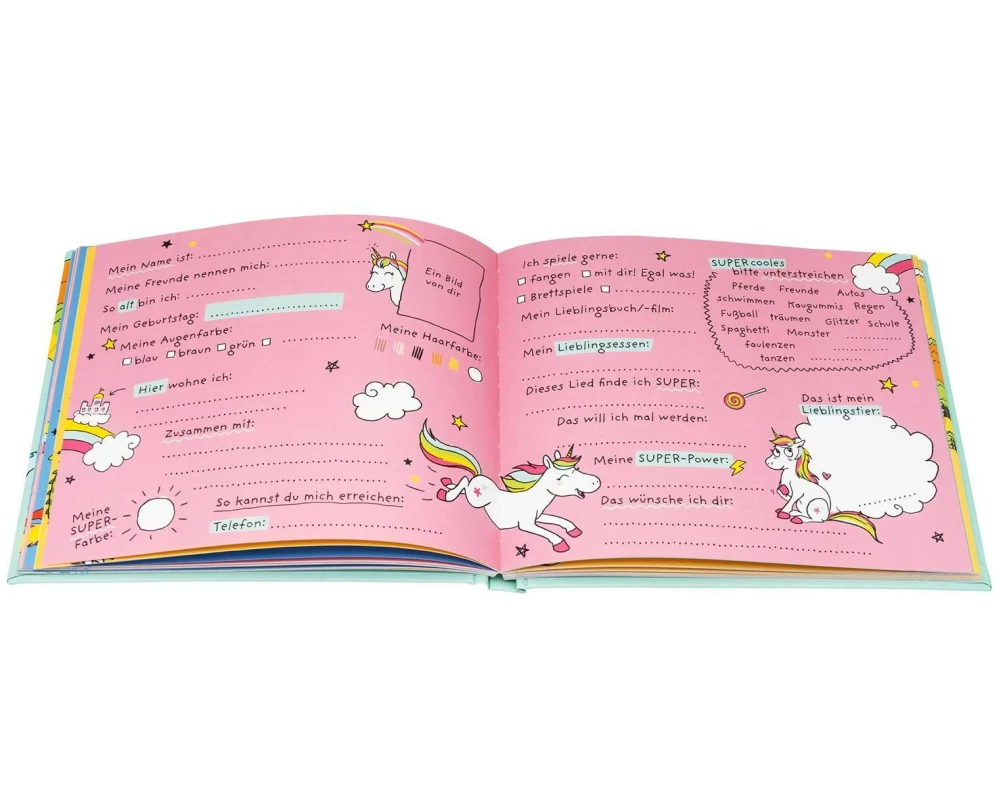 Mein Name ist:
Meine Freunde nennen mich:
So alt bin ich:
Mein Geburtstag:
Meine Augenfarbe:
blau braun grün
Ein Bild
von dir
Meine Haarfarbe:
Hier wohne ich:
Zusammen mit:
So kannst du mich erreichen:
Telefon:
Meine
SUPER-
Farbe:
Ich spiele gerne:
fangen mit dir! Egal was!
Brettspiele
Mein Lieblingsbuch/-film:
Mein Lieblingsessen:
Dieses Lied finde ich SUPER:
Das will ich mal werden:
Meine SUPER-Power:
Das wünsche ich dir:
SUPERcooles
bitte unterstreichen
Pferde Freunde Autos
schwimmen Kaugummis Regen
Fußball träumen Glitzer Schule
Spaghetti Monster
faulenzen
tanzen
Das ist mein
Lieblingstier: